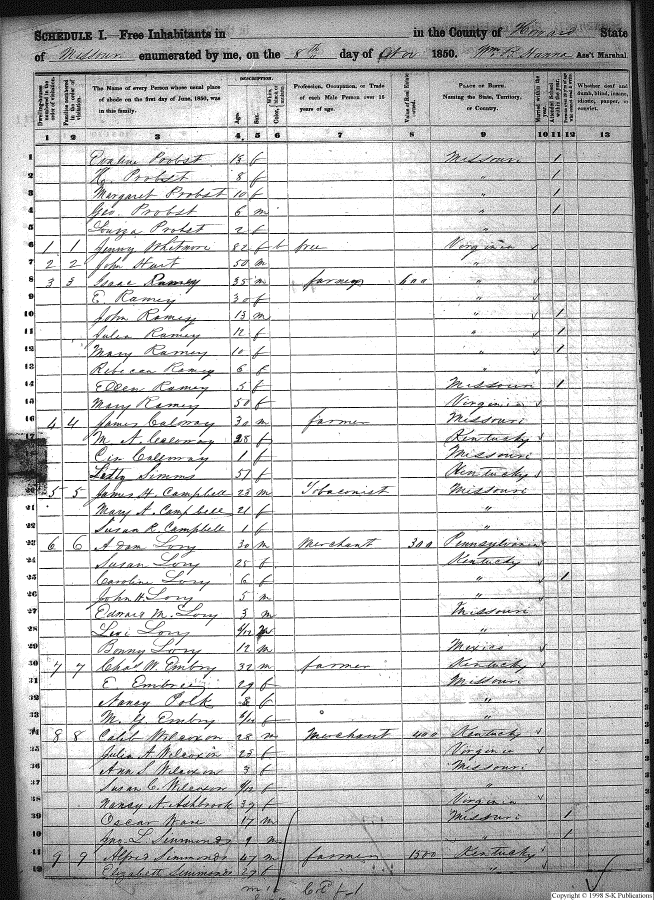 SCHEDULE I.—Free Inhabitants in in the County of Howard State
of Missouri enumerated by me, on the 8th day of Nov 1850. Wm B. Hanna Ass't Marshal.
Dwelling-houses numbered in the order of visitation.
Families numbered in the order of visitation.
The Name of every Person whose usual place of abode on the first day of June, 1850, was in this family.
DESCRIPTION.
Age.
Sex.
Color,
Profession, Occupation, or Trade of each Male Person over 15 years of age.
Value of Real Estate owned.
PLACE OF BIRTH. Naming the State, Territory, or Country.
Married within the year.
Whether deaf and dumb, blind, insane, idiotic, pauper, or convict.
1 2 3 4 5 6 7 8 9 10 11 12 13
1 Evaline Probst 13 f Missouri 1
2 Probst 8 f " 1
3 Margaret Probst 10 f " 1
4 Geo. Probst 6 m " 1
5 Probst 2 f "
6 1 1 Jenny Whitmore 82 f b free Virginia
7 2 2 John Hurt 50 m "
8 3 3 Isaac Ramey 35 m farmer 600 "
9 E. Ramey 30 f "
10 John Ramey 13 m " 1
11 Julia Ramey 12 f " 1
12 Mary Ramey 10 f " 1
13 Rebecca Ramey 6 f "
14 Ellen Ramey 5 f Missouri 1
15 Mary Ramey 50 f Virginia
16 4 4 James Caloway 30 m farmer Missouri
17 M. A. Caloway 28 f Kentucky
18 Calloway 1 f Missouri
19 Simms 51 f Kentucky
20 5 5 James H. Campbell 23 m Tobaconist Missouri
21 Mary A. Campbell 21 f "
22 Susan R. Campbell 1 f "
23 6 6 Adam Lory 30 m Merchant 300 Pennsylvania
24 Susan Lory 25 f Kentucky
25 Caroline Lory 6 f " 1
26 John H. Lory 5 m "
27 Edward M. Lory 3 m Missouri
28 Levi Lory "
29 Benny Lory 12 m Mexico
30 7 7 Chas W. Embry 32 m farmer Kentucky
31 E. Embree 29 f Missouri
32 Nancy Polk 8 f "
33 M. Y. Embry f "
34 8 8 Calib Wilcoxon 28 m Merchant 400 Kentucky
35 Julia A. Wilcoxon 23 f Virginia
36 Ann S. Wilcoxon 3 f Missouri
37 Susan C. Wilcoxon f "
38 Nancy A. Ashbrook 39 f Virginia
39 Oscar Ware 17 m Missouri 1
40 Jno. L. Simmonds 9 m " 1
41 9 9 Alfred Simmonds 47 m farmer 1500 Kentucky
42 Elizabeth Simmonds 29 f "
Copyright © 1998 S-K Publications